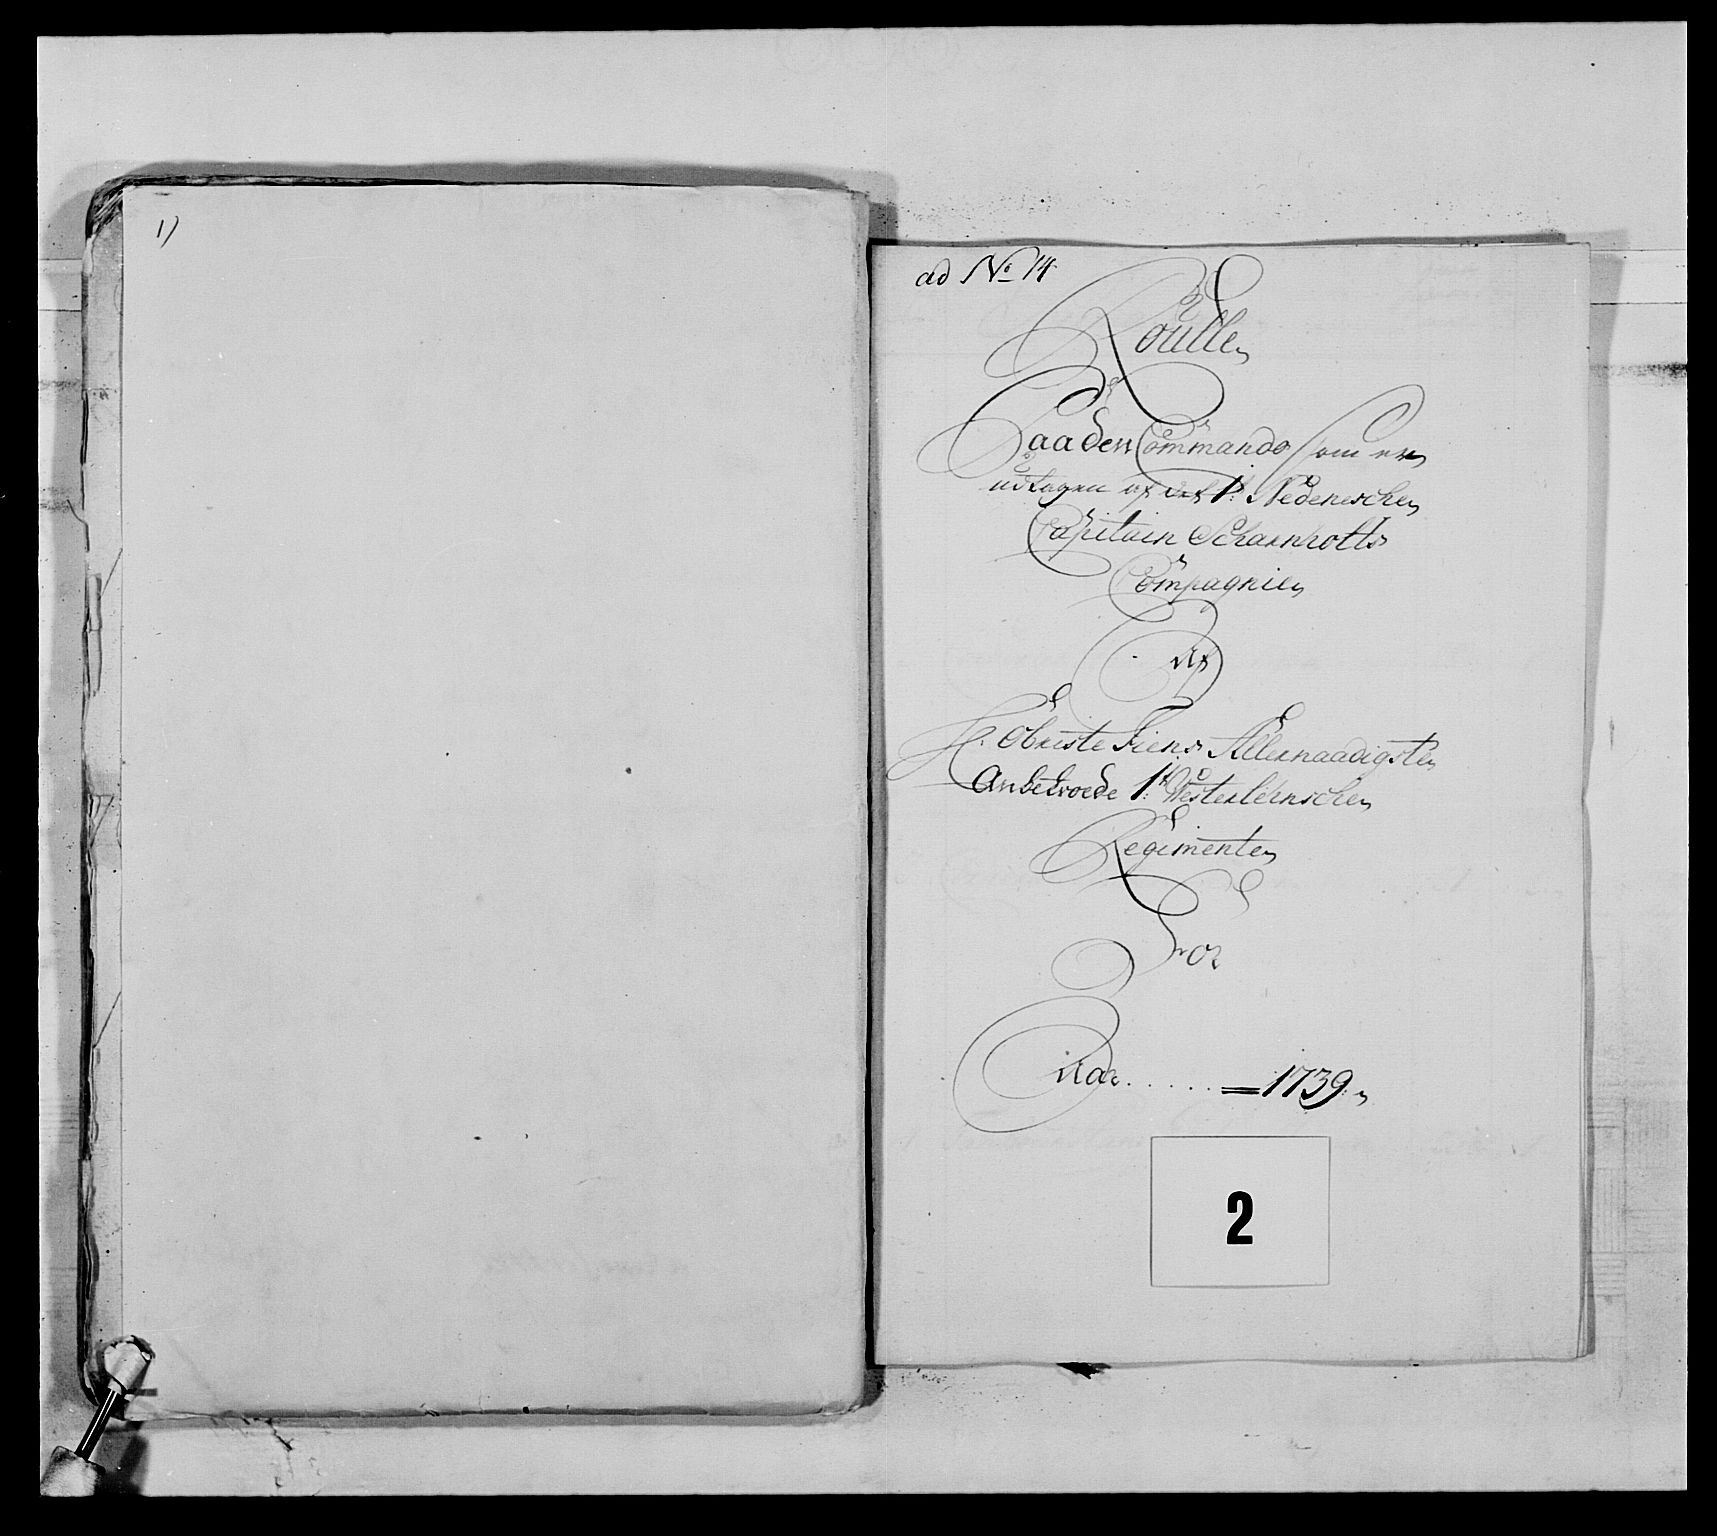 1)
ad No 14
Roulle
Paa den Commando som er
udtagen af det 1t: Nedenesche
Capitain Scharnholts
Compagnie
Af
H. Obriste Fiens Allernaadigste
Anbetroede 1t: Westerlehnsche
Regimente
For
Aar ...... = 1739.
2